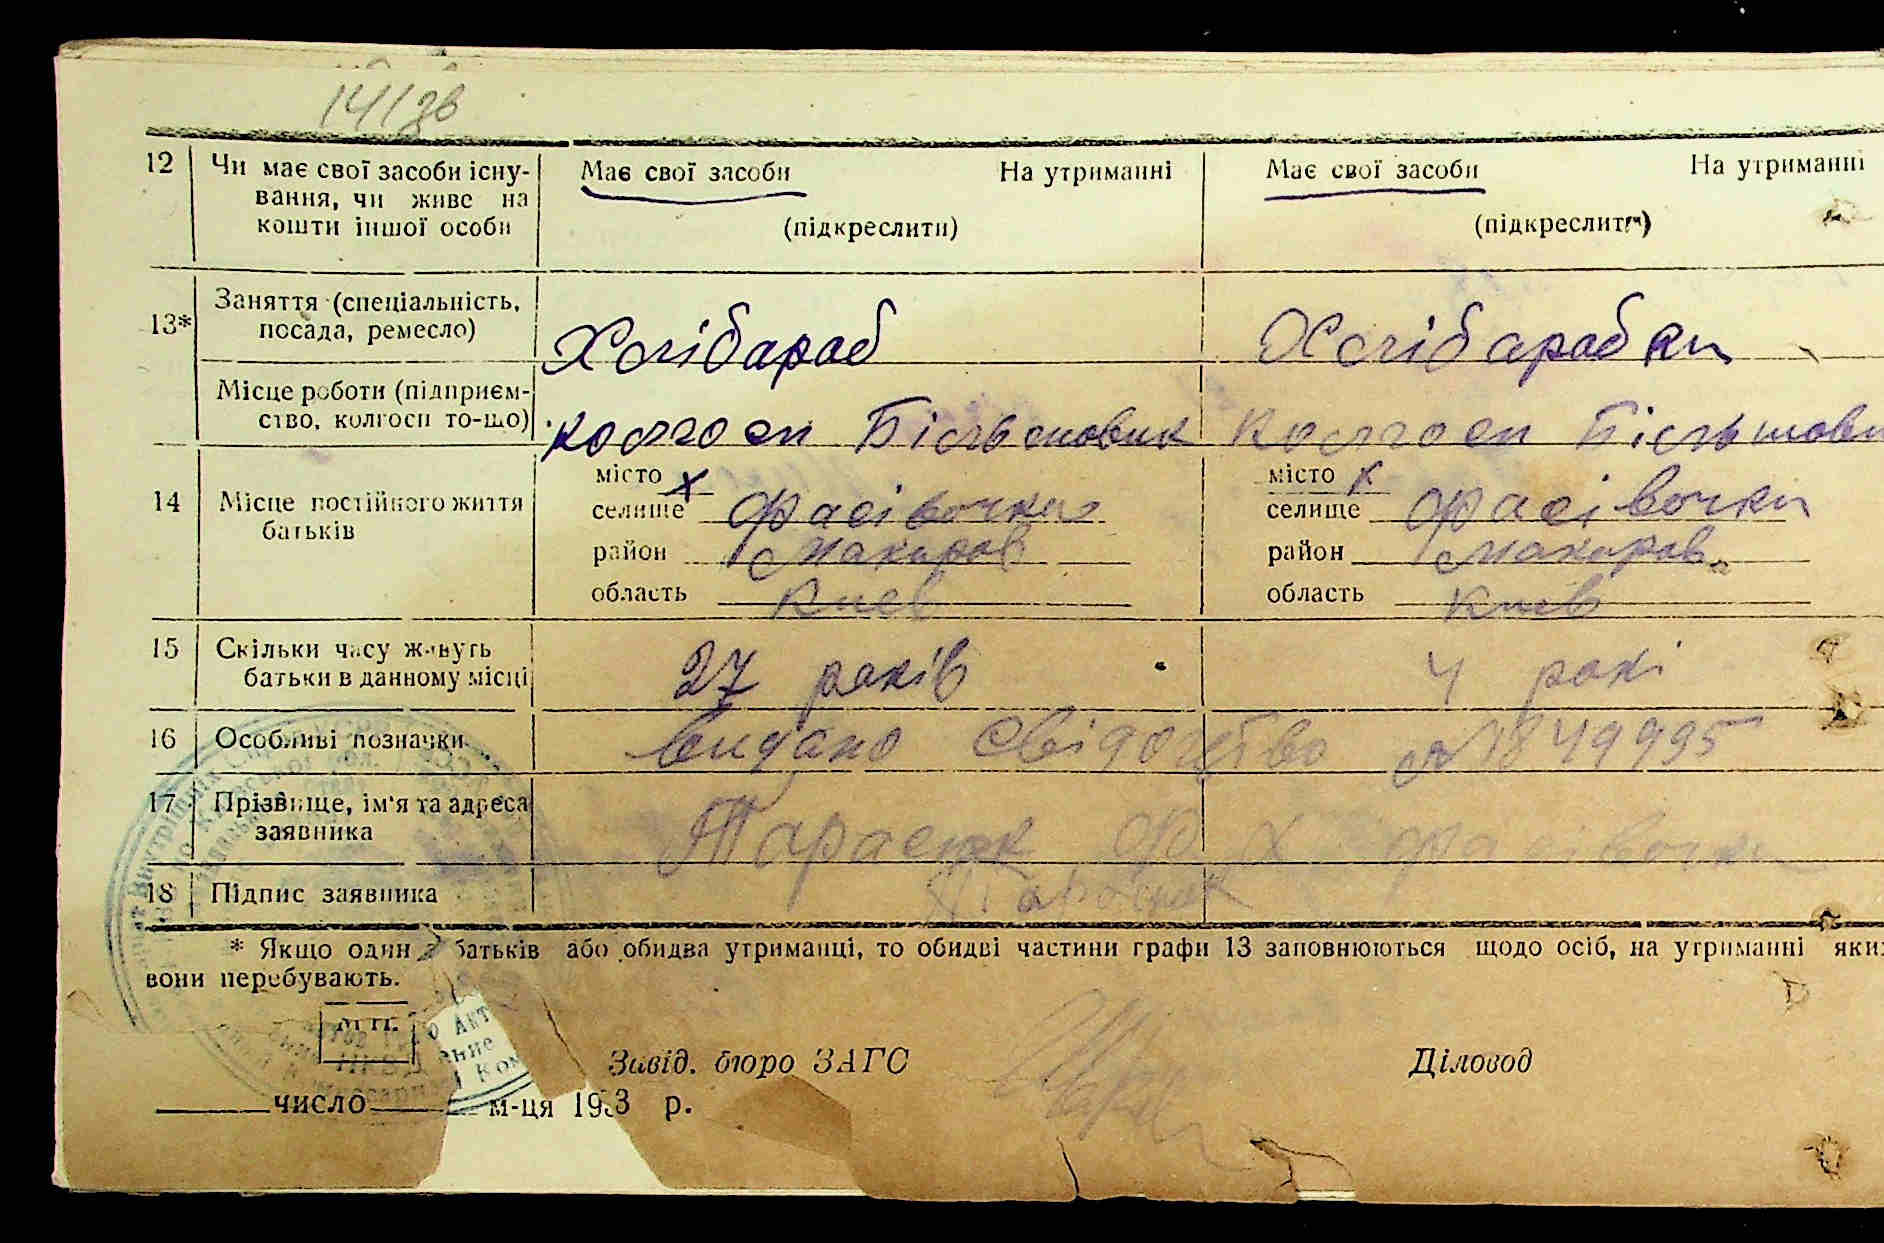 141зв
12 Чи має свої засоби існу- Має свої засоби На утриманні Має свої засоби На утриманні
вання, чи живе на
кошти іншої особи (підкреслити) (підкреслити)
13* Заняття (спеціальність,
посада, ремесло) Хлібараб Хлібарабки
Місце роботи (підприєм-
ство, колгосп то-що) колгосп Більшовик колгосп Більшови
місто х місто х
14 Місце постійного життя селище Фасівочки селище Фасівочки
батьків район Макаров район Макаров
область Киев область Киев
15 Скільки часу живуть
батьки в данному місці 27 раків 4 ракі
16 Особливі позначки видано свідоцтво №1849995
17 Прізвище, ім'я та адреса
заявника Тарасюк Ф Х Фасівочки
18 Підпис заявника Тарасюк
* Якщо один з батьків або обидва утриманці, то обидві частини графи 13 заповнюються щодо осіб, на утриманні яких
вони перебувають.
М. П.
Завід. бюро ЗАГС Діловод
число м-ця 193 р.